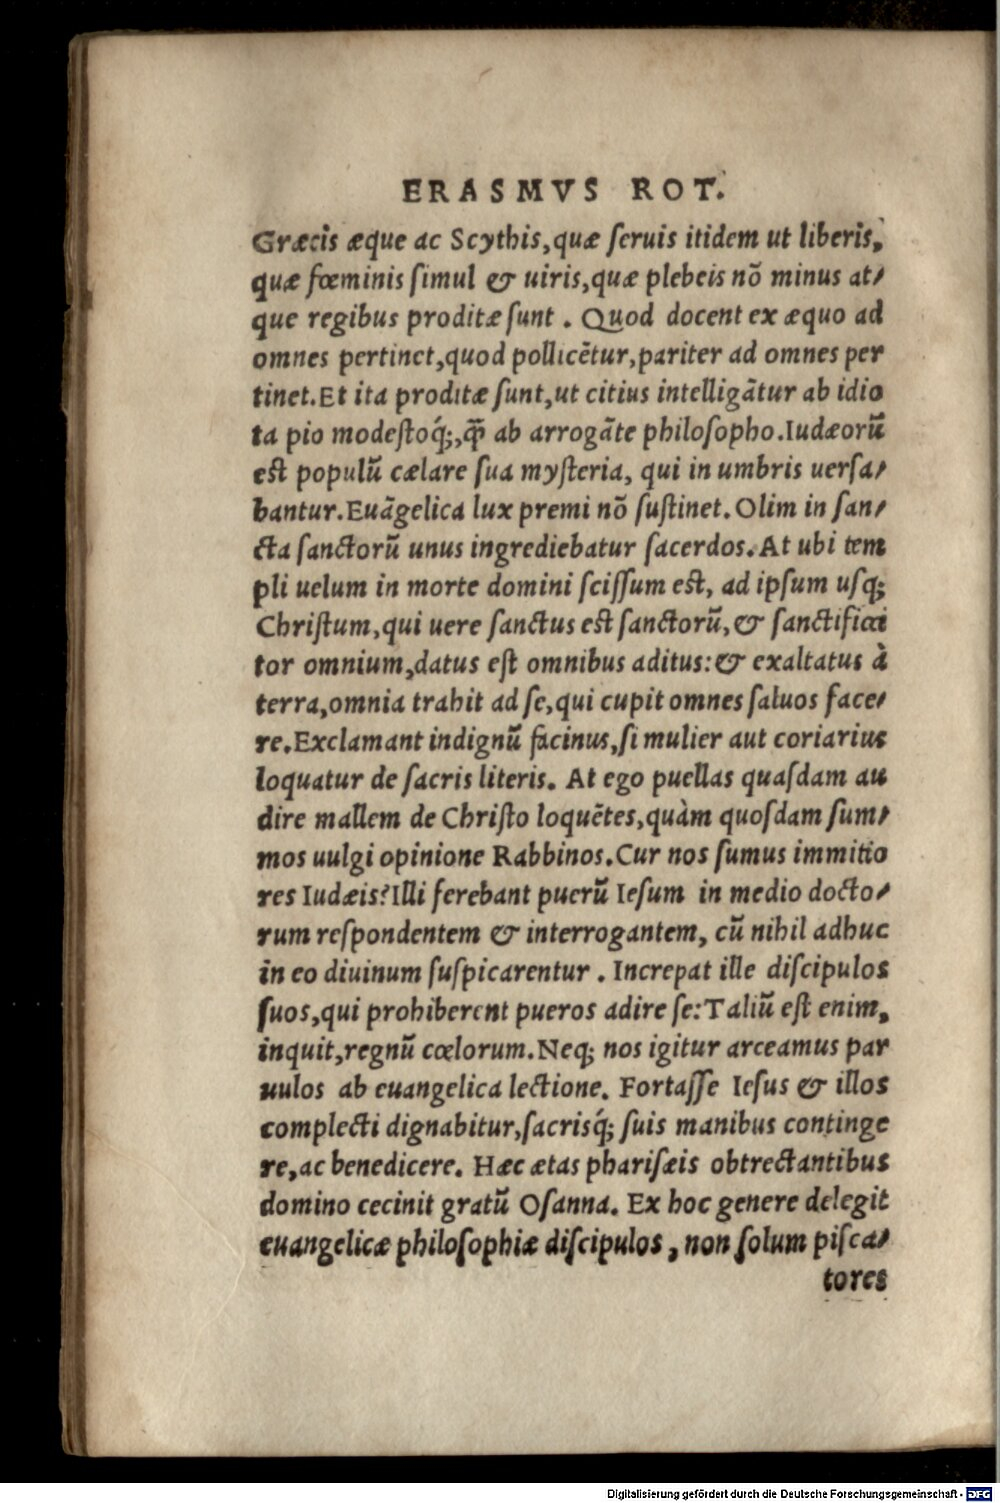 ERASMVS ROT.
Græcis æque ac Scythis, quæ ſeruis itidem ut liberis,
quæ fœminis ſimul & uiris, quæ plebeis nõ minus at/
que regibus proditæ ſunt . Quod docent ex æquo ad
omnes pertinet, quod pollicẽtur, pariter ad omnes per
tinet. Et ita proditæ ſunt, ut citius intelligãtur ab idio
ta pio modeſtoq́;, q̃ ab arrogãte philoſopho. Iudæorũ
eſt populũ cælare ſua myſteria, qui in umbris uerſa/
bantur. Euãgelica lux premi nõ ſuſtinet. Olim in ſan/
cta ſanctorũ unus ingrediebatur ſacerdos. At ubi tem
pli uelum in morte domini ſciſſum eſt, ad ipſum uſq;
Chriſtum, qui uere ſanctus eſt ſanctorũ, & ſanctifica
tor omnium, datus eſt omnibus aditus: & exaltatus à
terra, omnia trahit ad ſe, qui cupit omnes ſaluos face/
re. Exclamant indignũ facinus, ſi mulier aut coriarius
loquatur de ſacris literis. At ego puellas quaſdam au
dire mallem de Chriſto loquẽtes, quàm quoſdam ſum/
mos uulgi opinione Rabbinos. Cur nos ſumus immitio
res Iudæis? Illi ferebant puerũ Ieſum in medio docto/
rum reſpondentem & interrogantem, cũ nihil adhuc
in eo diuinum ſuſpicarentur . Increpat ille diſcipulos
ſuos, qui prohiberent pueros adire ſe: Taliũ eſt enim,
inquit, regnũ cœlorum. Neq; nos igitur arceamus par
uulos ab euangelica lectione. Fortaſſe Ieſus & illos
complecti dignabitur, ſacrisq́; ſuis manibus continge
re, ac benedicere. Hæc ætas phariſæis obtrectantibus
domino cecinit gratũ Oſanna. Ex hoc genere delegit
euangelicæ philoſophiæ diſcipulos, non ſolum piſca/
tores
Digitalisierung gefördert durch die Deutsche Forschungsgemeinschaft - DFG